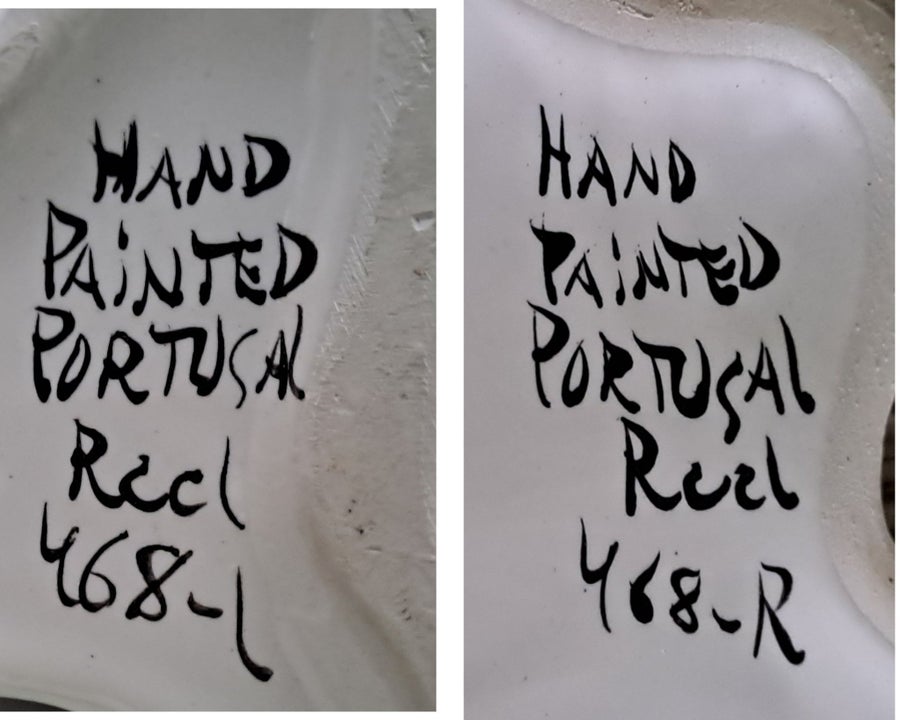 HAND
PAiNTED
PORTUGAL
Rccl
468-L
HAND
PAiNTED
PORTUGAL
Rccl
468-R